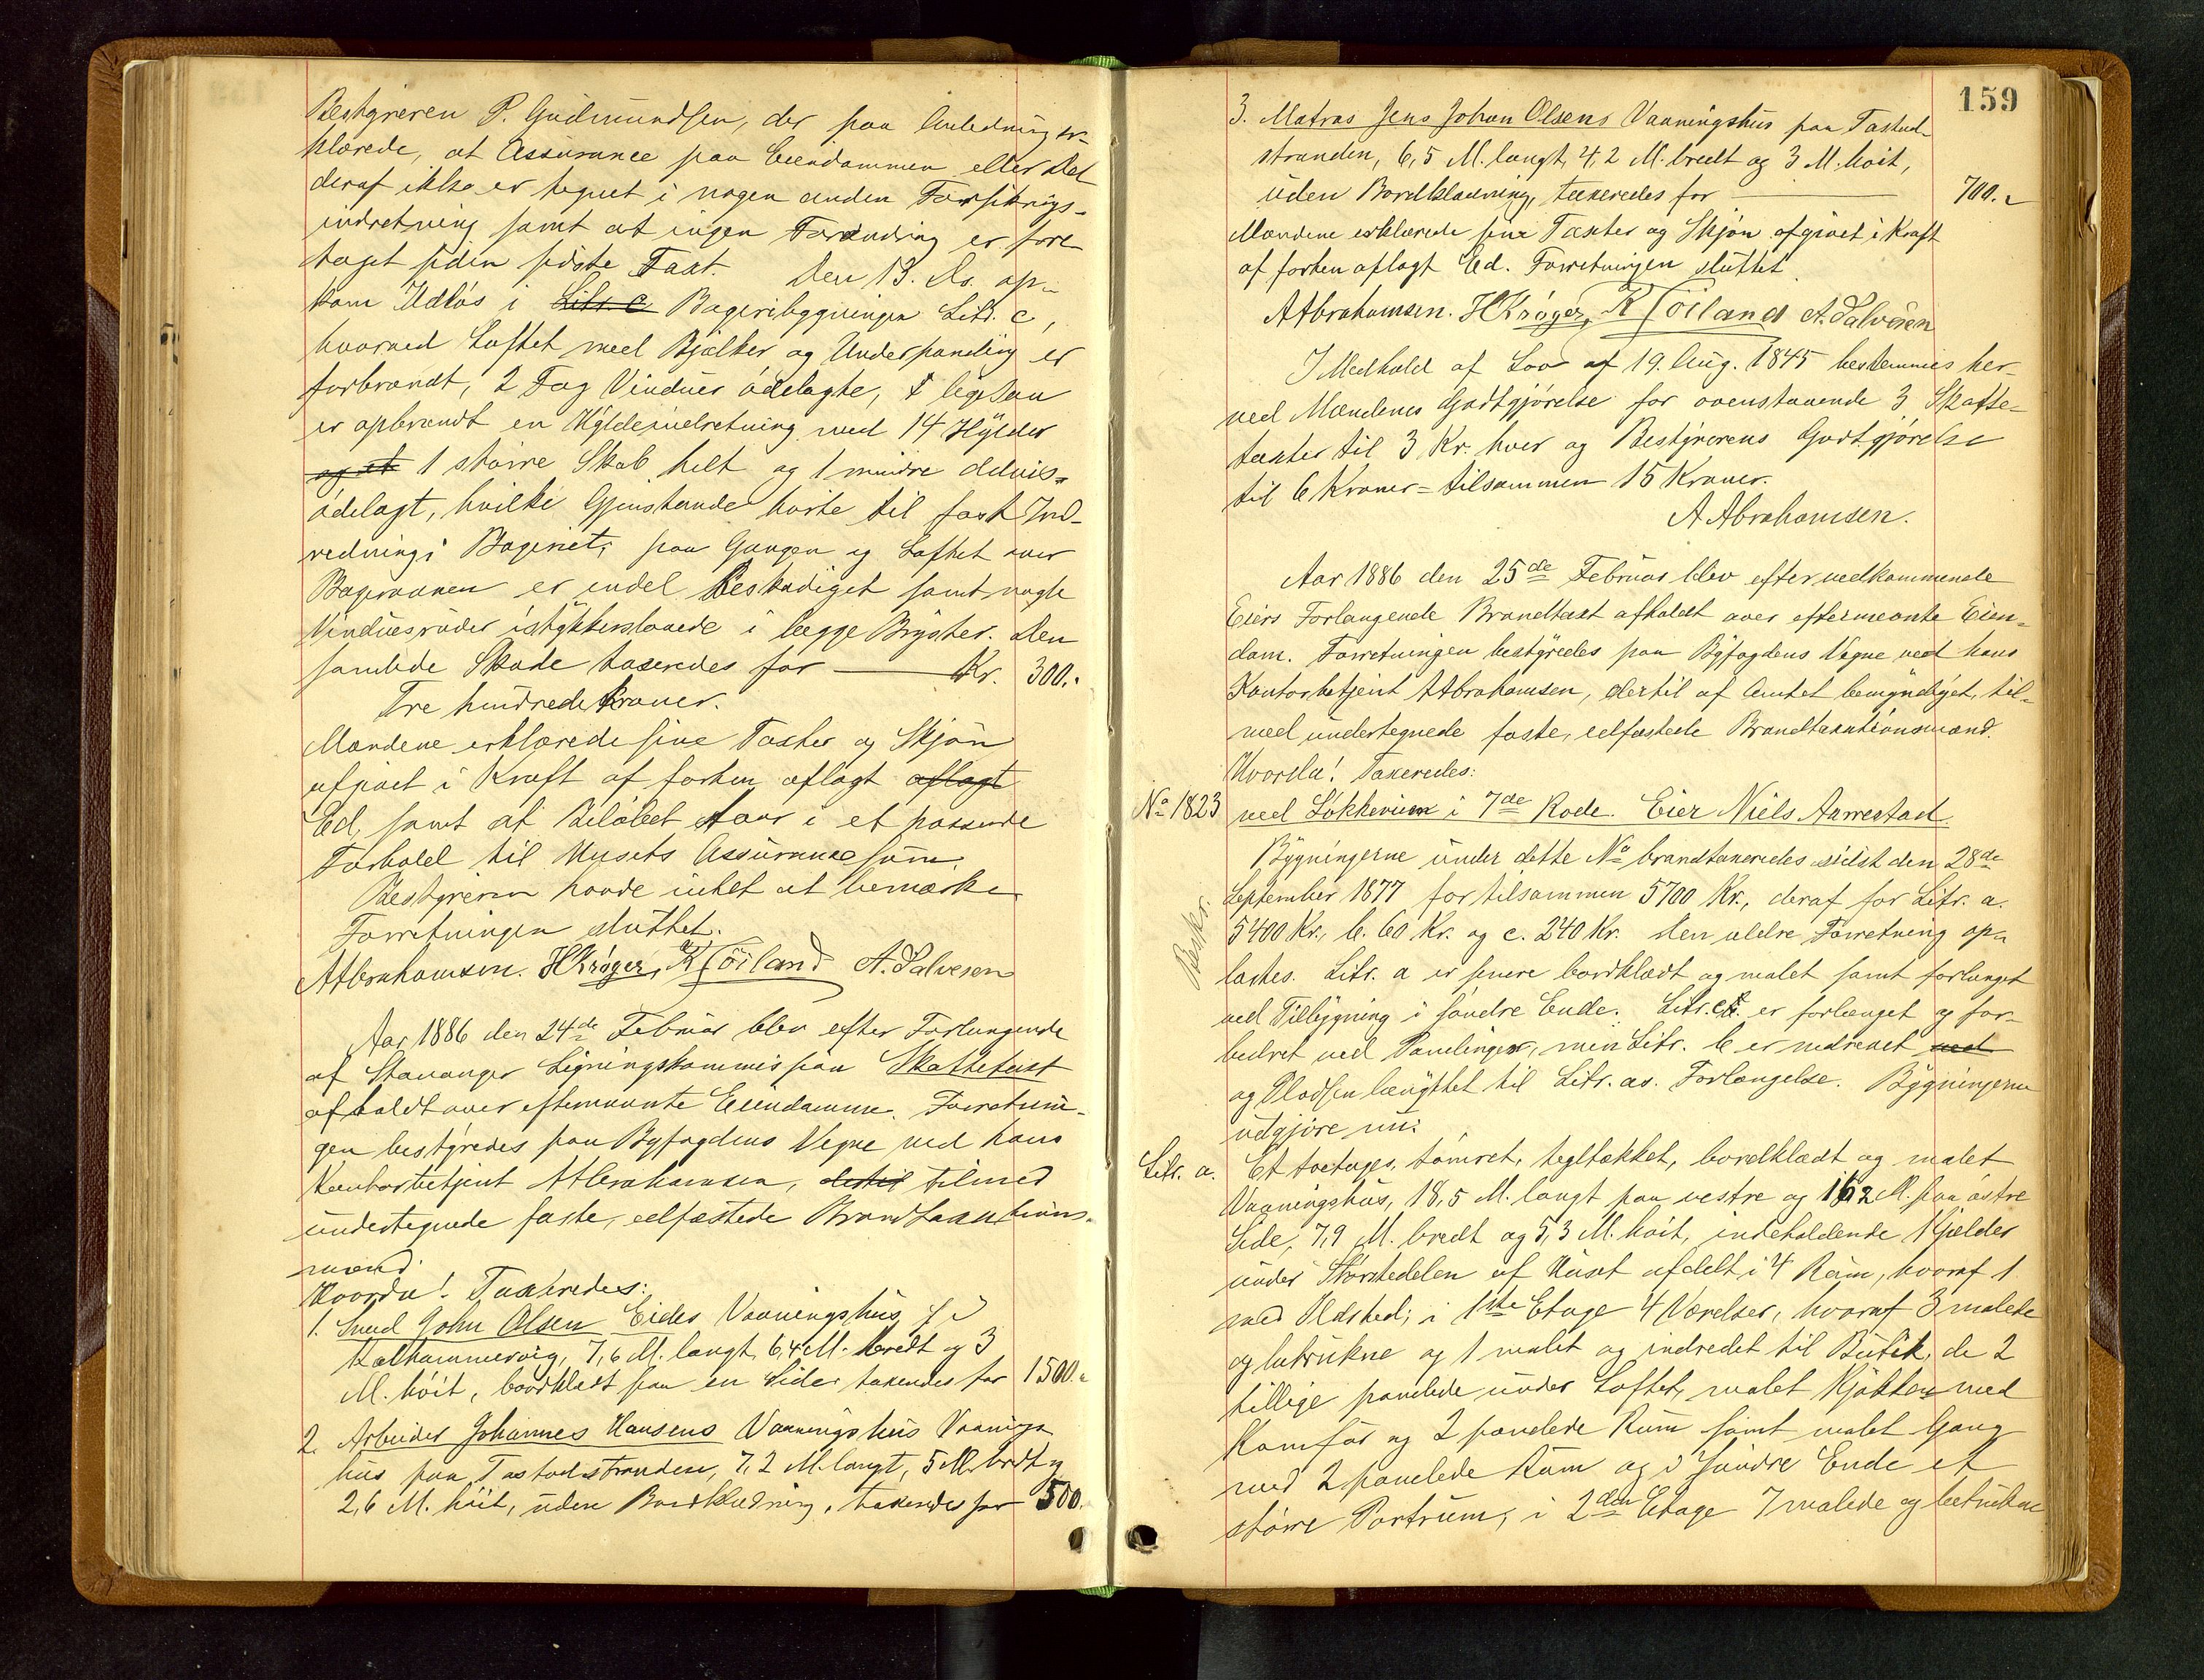 Bestyreren P. Gudmundsen, der paa Anledning er-
klærede, at Assurance paa Eiendommen eller Del
deraf ikke er tegnet i nogen anden Forsikrings-
indretning samt at ingen Forandring er fore
taget siden sidste Taxt. Den 13. ds. op-
kom Ildløs i Litr. c Bageribygningen Litr. c,
hvorved Loftet med Bjælker og Underpaneling er
forbrændt, 2 Fag Vinduer ødelagte, ligesaa
er opbrændt en Hyldeindretning med 14 Hylder
og et 1 større Skab helt og 1 mindre delvis
ødelagt, hvilke Gjenstande hørte til fast Ind-
redning i Bageriet; paa Gangen og Loftet over
Bagerovnen er endel beskadiget samt nogle
Vinduesruder istykkerslaaede i begge Bryster. Den
samlede Skade taxeredes for — Kr. 300.
Tre hundrede Kroner.
Mændene erklærede sine Taxter og Skjøn
afgivet i Kraft af forhen aflagt aflagt
Ed, samt at Beløbet staar i et passende
Forhold til Husets Assurancesum.
Bestyreren havde intet at bemærke
Forretningen sluttet.
A Abrahamsen. H Krøger, K Höiland A. Salvesen
Aar 1886 den 24de Februar blev efter Forlangende
af Stavanger Ligningskommission Skattetaxt
afholdt over eftermeonte Eiendomme. Forretnin-
gen bestyredes paa Byfogdens Vegne ved hans
Kontorbetjent A Abrahamsen, dertil tilmed
undertegnede faste, edfæstede Brandtaxations-
mænd.
Hvorda! Taxeredes:
1. Smed John Olsen Eides Vaaningshus i
Kalhammervig, 7,6 M. langt 6,4 M. bredt og 3
M. høit, bordklædt paa en Side, taxeredes for 1500.
2. Arbeider Johannes Hansens Vaaningshus Vaanings
hus paa Tastadstranden, 7,2 M. langt, 5 M. bredt og
2,6 M. høit, uden Bordklædning, taxeredes for 500.
159
3. Matros Jens Johan Olsens Vaaningshus paa Tastad-
stranden, 6,5 M. langt, 4,2 M. bredt og 3 M. høit,
uden Bordklædning, taxeredes for — 700.
Mændene erklærede sine Taxter og Skjøn afgivet i Kraft
af forhen aflagt Ed. Forretningen sluttet.
A Abrahamsen. H Krøger, K Höiland A. Salvesen
I Medhold af Lov af 19. Aug. 1845 bestemmes her-
ved Mændenes Godtgjørelse for ovenstaaende 3 Skatte-
taxter til 3 Kr. hver og Bestyrerens Godtgjørelse
til 6 Kroner = tilsammen 15 Kroner.
A Abrahamsen.
Aar 1886 den 25de Februar blev efter vedkommende
Eiers Forlangende Brandtaxt afholdt over eftermeonte Eien-
dom. Forretningen bestyredes paa Byfogdens Vegne ved hans
Kontorbetjent A Abrahamsen, dertil af Amtet bemyndiget, til-
med undertegnede faste, edfæstede Brandtaxationsmænd.
Hvorda! Taxeredes:
No 1823 ved Løkkeveien i 7de Rode. Eier Niels Aarrestad
Bygningerne under dette No brandtaxeredes sidst den 28de
Beskr.
September 1877 for tilsammen 5700 Kr., deraf for Litr. a.
5400 Kr., b. 60 Kr. og c. 240 Kr. Den ældre Forretning op-
læstes. Litr. a er senere bordklædt og malet samt forlænget
ved Tilbygning i søndre Ende. Litr. c. er forlænget og for-
bedret ved Panelinger, men Litr. b er nedrevet med
og Pladsen benyttet til Litr. as. Forlængelse. Bygningerne
udgjøre nu:
Litr. a. Et toetages, tømret, tegltækket, bordklædt og malet
Vaaningshus, 18,5 M. langt paa vestre og 16,2 M. paa østre
Side, 7,9 M. bredt og 5,3 M. høit, indeholdende Kjælder
under Størstedelen af Huset afdelt i 4 Rum, hvoraf 1
med Ildsted; i 1ste Etage 4 Værelser, hvoraf 3 malede
og betrukne og 1 malet og indredet til Butik, de 2
tillige panelede under Loftet, malet Kjøkken med
Komfur og 2 panelede Rum samt malet Gang
med 2 panelede Rum og i søndre Ende et
større Portrum; i 2den Etage 7 malede og betrukne